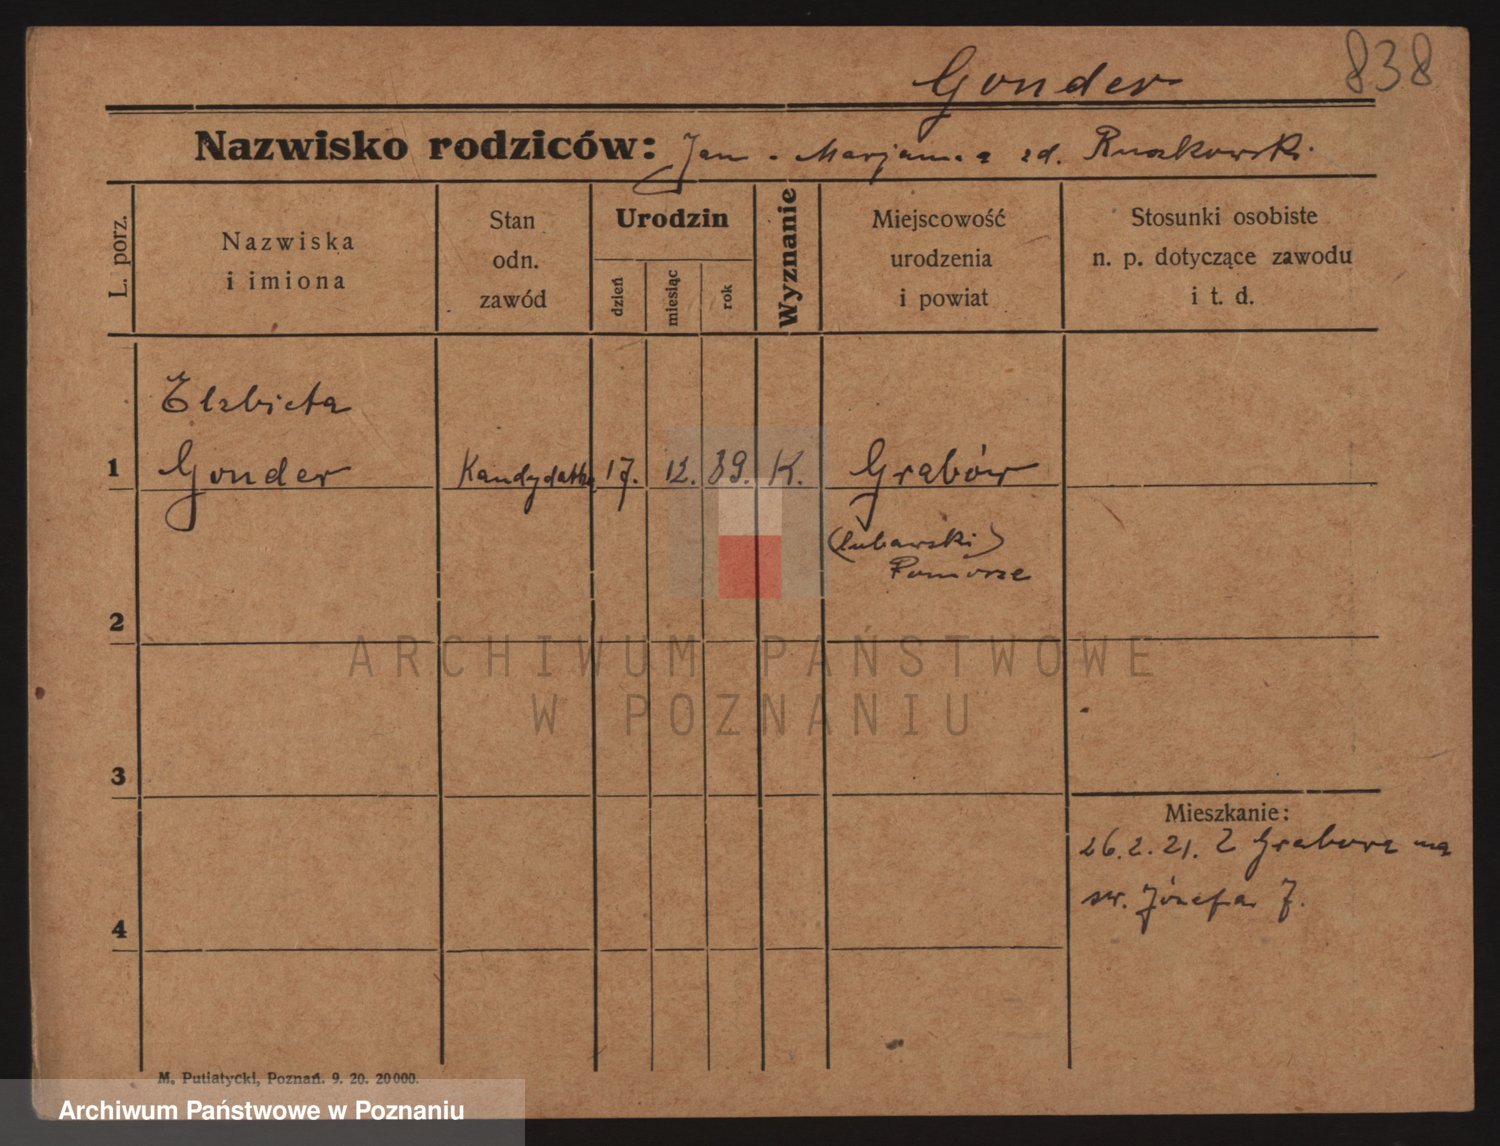 Gonder
838
Nazwisko rodziców: Jan - Marjanna zd. Ruszkowski
L. porz.
Nazwiska
i imiona
Stan
odn.
zawód
Urodzin
dzień
miesiąc
rok
Wyznanie
Miejscowość
urodzenia
i powiat
Stosunki osobiste
n. p. dotyczące zawodu
i t. d.
Elzbieta
1 Gonder Kandydatka 17. 12. 89. K. Grabów
(lubawski)
Pomorze
2
ARCHIWUM PAŃSTWOWE
W POZNANIU
3
Mieszkanie:
26.2.21. Z Grabowa na
św. Józefa 7.
4
M. Putiatycki, Poznań. 9. 20. 20000.
Archiwum Państwowe w Poznaniu